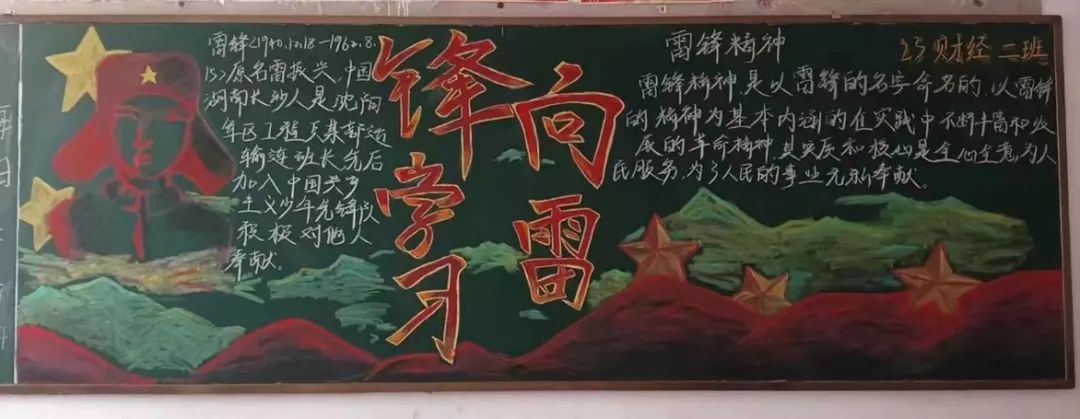 雷锋(1940.12.18—1962.8.
15)原名雷振兴,中国
湖南长沙人是沈阳
军区工程兵某部运
输连班长先后
加入中国共产
主义少年先锋队
积极对他人
奉献。
向雷
锋学习
雷锋精神
23财经二班
雷锋精神,是以雷锋的名字命名的,以雷锋
的精神为基本内涵的在实践中不断丰富和发
展的革命精神,其实质和核心是全心全意为人
民服务,为了人民的事业无私奉献。